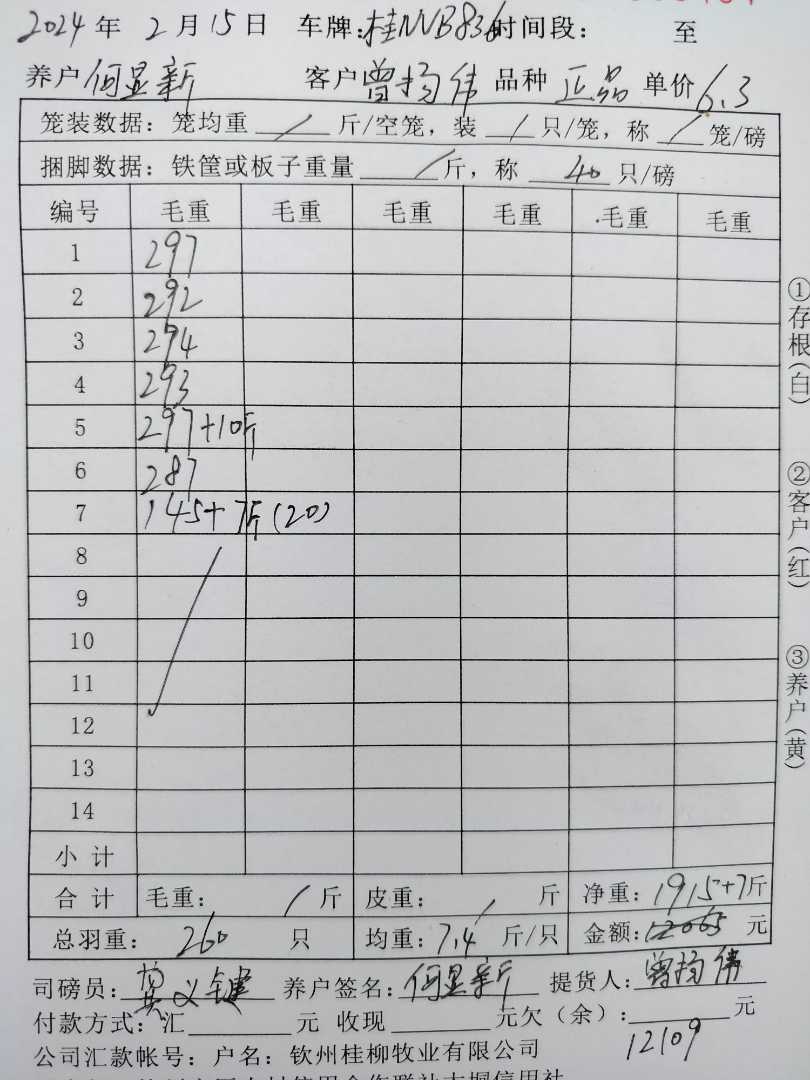 2024 年 2 月 15 日 车牌:桂NVB836 时间段: 至
养户 何显新 客户 曾扬伟 品种 正品 单价 6.3
笼装数据: 笼均重 / 斤/空笼, 装 / 只/笼, 称 / 笼/磅
捆脚数据: 铁筐或板子重量 / 斤, 称 40 只/磅
编号 毛重 毛重 毛重 毛重 毛重 毛重
1 297
2 292
3 294
4 293
5 297+10斤
6 287
7 145+7斤(20)
8
9
10
11
12
13
14
小计
合计 毛重: / 斤 皮重: / 斤 净重: 1915+7斤
总羽重: 260 只 均重: 7.4 斤/只 金额: 12065 元
司磅员: 义键 养户签名: 何显新 提货人: 曾扬伟
付款方式: 汇 元 收现 元欠(余): 元
12109
公司汇款帐号: 户名: 钦州桂柳牧业有限公司
①存根(白)
②客户(红)
③养户(黄)